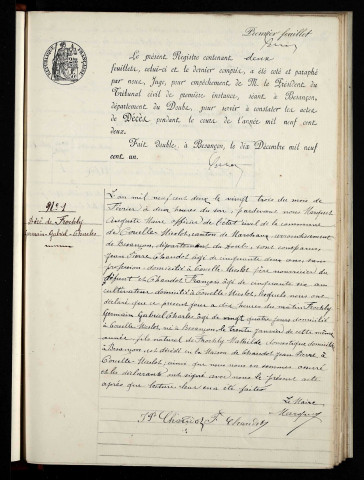 Premier feuillet
Le présent Registre contenant deux
feuillets, celui-ci et le dernier compris, a été coté et paraphé
par nous, Juge, pour empêchement de M. le Président du
Tribunal civil de première instance, séant à Besançon,
département du Doubs, pour servir à constater les actes
de Décès pendant le cours de l'année mil neuf cent
deux.
Fait double, à Besançon, le dix Décembre mil neuf
cent un.
N° 1
Décès de Frochly
Germain Gabriel Charles
L'an mil neuf cent deux le vingt trois du mois de
Février à deux heures du soir, pardevant nous
Maire officier de l'état civil de la commune
de canton de Marchaux arrondissement
de Besançon, département du Doubs, sont comparus
Jean Pierre, Chaudot âgé de cinquante deux ans, sans
profession, domicilié à père nourricier du
défunt et Chaudot François âgé de cinquante six ans
cultivateur domicilié à lesquels nous ont
déclaré que ce présent jour à dix heures du matin Frochly
Germain Gabriel Charles âgé de vingt quatre jours domicilié
à né à Besançon, le trente janvier de cette même
année, fils naturel de Frochly Mathilde domestique domiciliée
à Besançon, est décédé en la maison de Chaudot Jean Pierre, à
ainsi que nous nous en sommes assuré
et les déclarants ont signé avec nous le présent acte
après que lecture leur en a été faite.
Le Maire